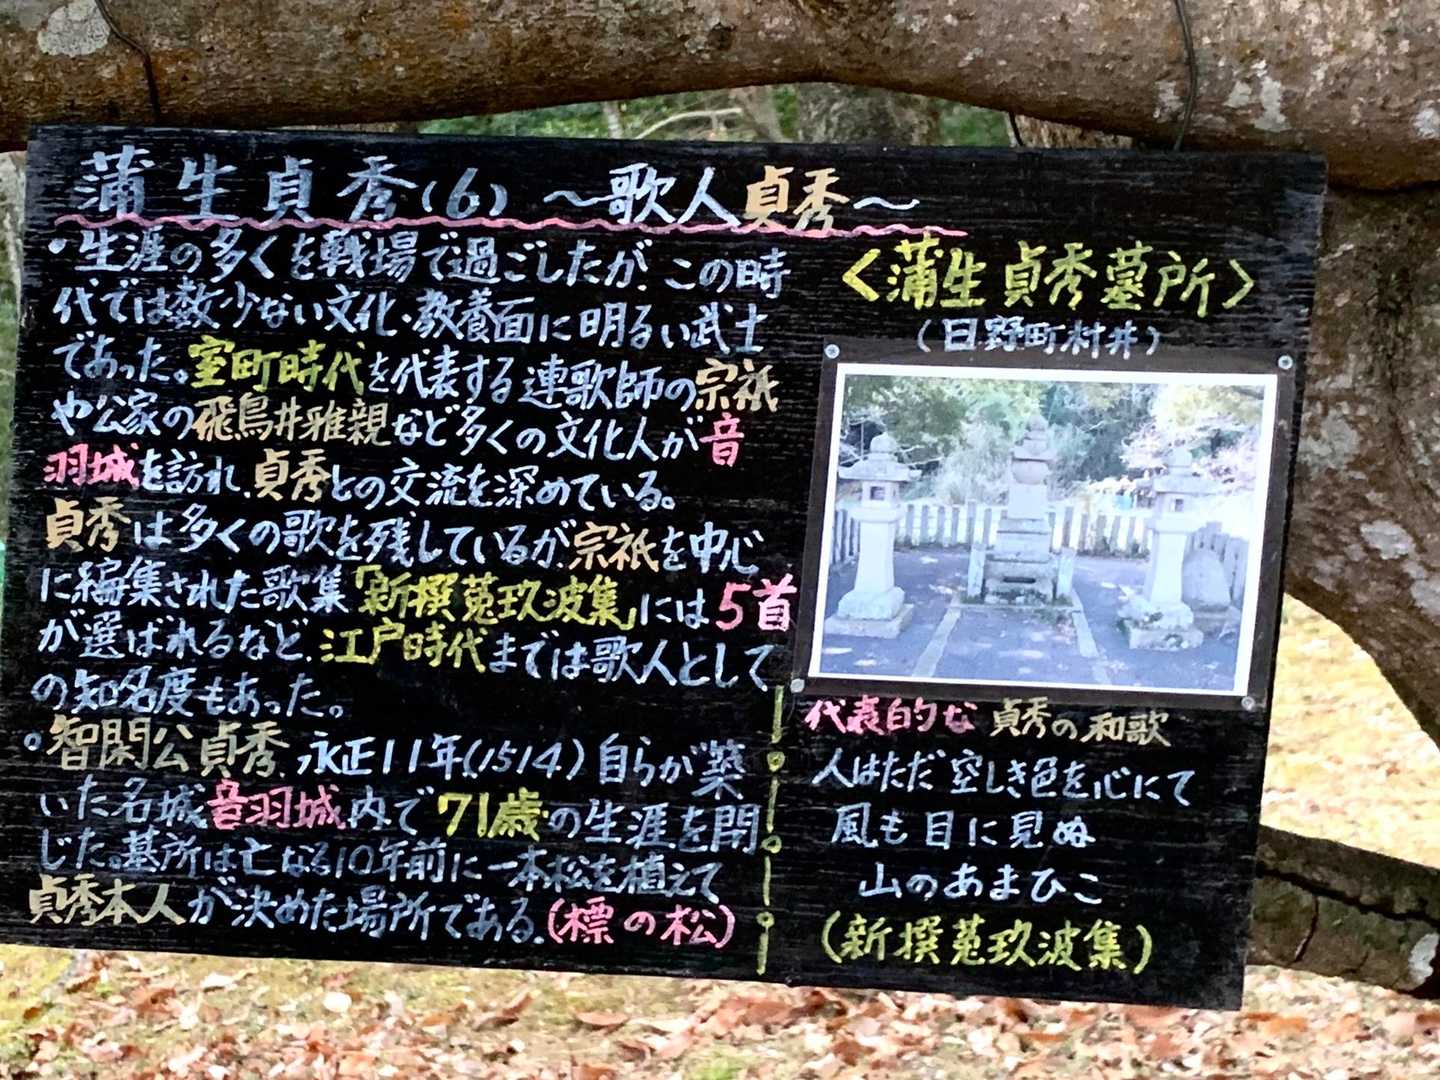 蒲生貞秀(6) 〜歌人貞秀〜
・生涯の多くを戦場で過ごしたが、この時
代では数少ない文化・教養面に明るい武士
であった。室町時代を代表する連歌師の宗祇
や公家の飛鳥井雅親など多くの文化人が音
羽城を訪れ、貞秀との交流を深めている。
貞秀は多くの歌を残しているが、宗祇を中心
に編集された歌集「新撰菟玖波集」には5首
が選ばれるなど、江戸時代までは歌人として
の知名度もあった。
。智閑公貞秀、永正11年(1514)自らが築
いた名城音羽城内で71歳の生涯を閉
じた。墓所は亡なる10年前に一本松を植えて
貞秀本人が決めた場所である。(標の松)
<蒲生貞秀墓所>
(日野町村井)
代表的な貞秀の和歌
人はただ空しき色を心にて
風も目に見ぬ
山のあまひこ
(新撰菟玖波集)